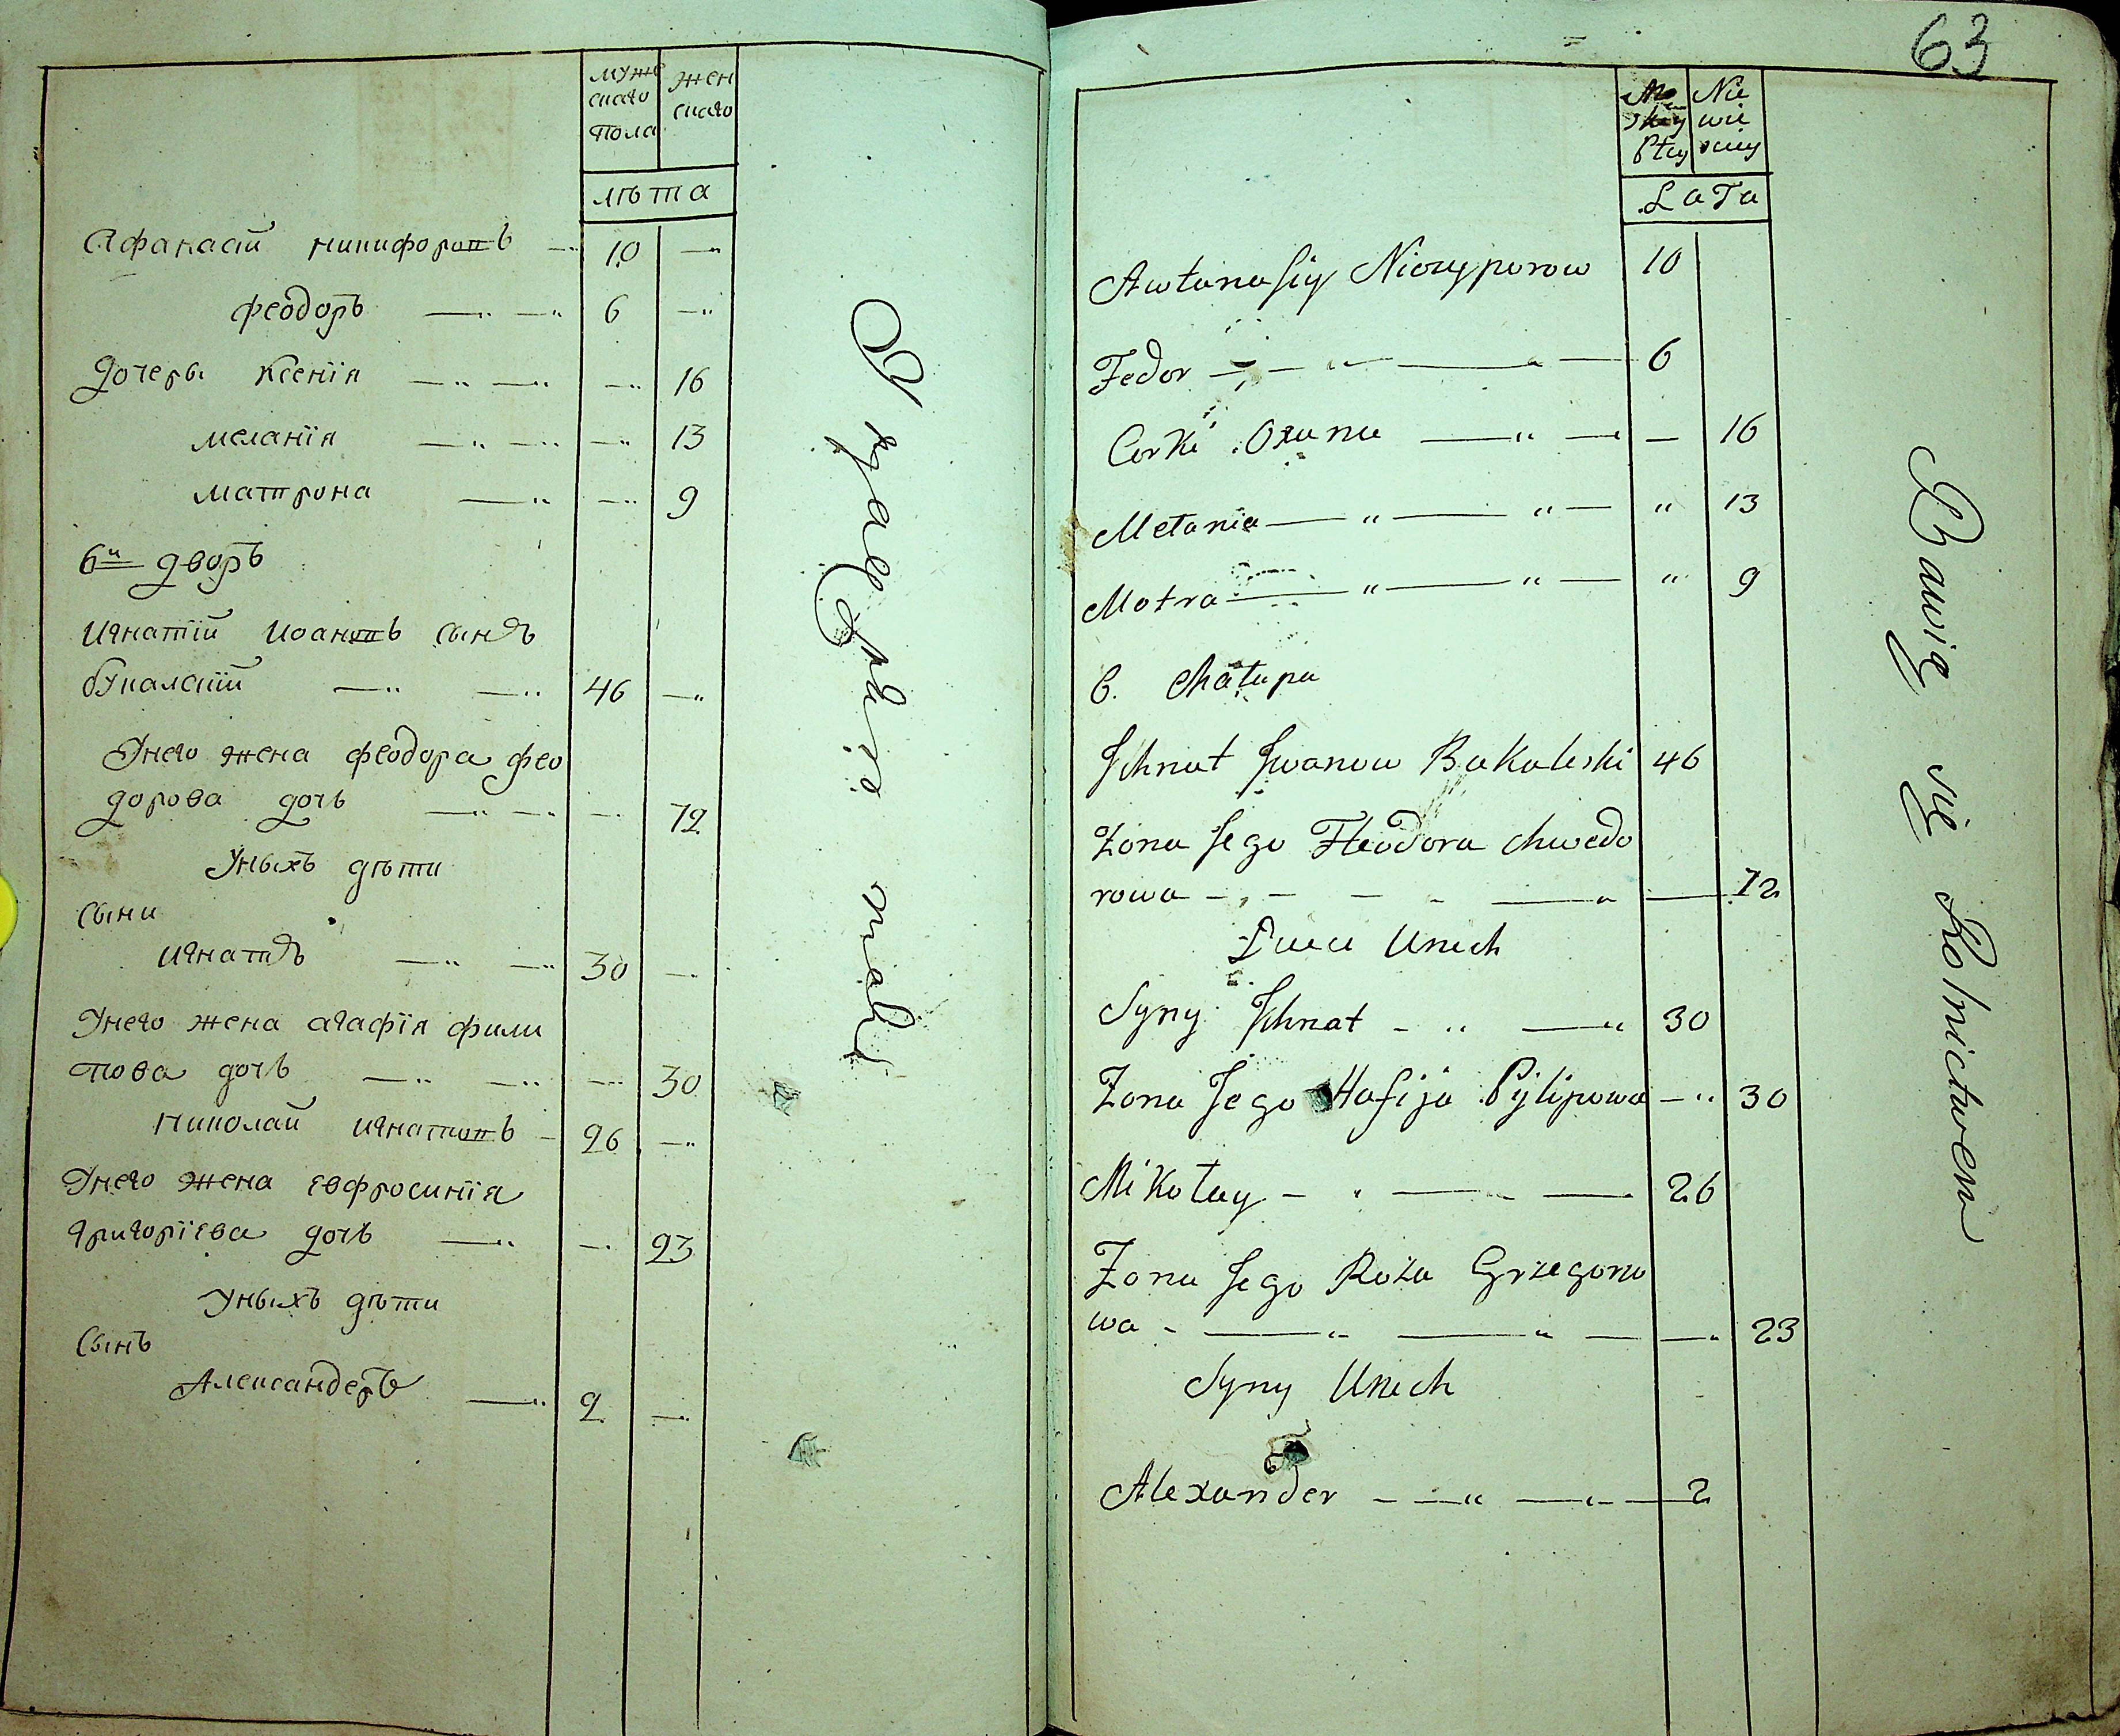 муже
скаго
пола
жен
скаго
лѣта
Афанасiй никифоровъ 10
феодоръ 6
дочеры ксенiя 16
меланiя 13
матрона 9
6й дворъ
игнатiй иоановъ сынъ
букалскiй 46
Унего жена феодора фео
дорова дочь 72
Уныхъ дѣти
сыни
игнатъ 30
Унего жена агафiя фили
пова дочь 30
николай игнатовъ 26
Унего жена евфросинiя
григорiева дочь 23
Уныхъ дѣти
Сынъ
Александеръ 2
63
Mę
skey
Płcy
Nie
wie
sciey
LaTa
Awtanasiy Niczyporow 10
Fedor 6
Corki Oxana 16
Mełania 13
Motra 9
6. Chałupa
Ichnat Iwanow Bakaleski 46
Zona Jego Fteodora Chwedo
rowa 72
Dzieci Unich
Syny Ichnat 30
Zona Jego Hafija Pylipowa 30
Mikołay 26
Zona Jego Roża Grzegorzo
wa 23
Syny Unich
Alexander 2
Bawię się Rolnictwem